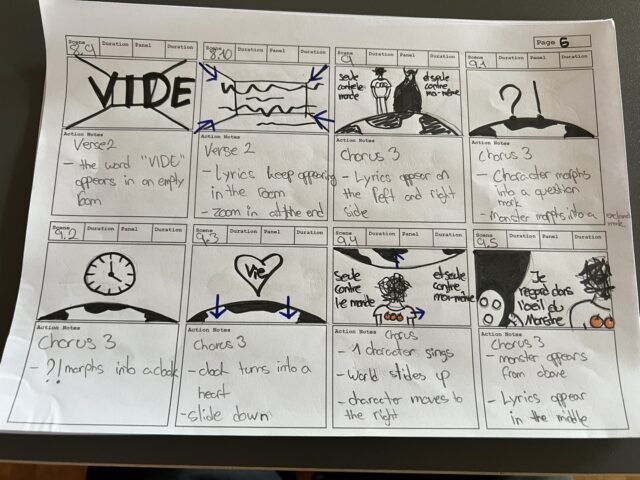 Page 6
Scene Duration Panel Duration
8.9
VIDE
Action Notes
Verse 2
- the word "VIDE"
appears in an empty
room
Scene Duration Panel Duration
8.10
Action Notes
Verse 2
- Lyrics keep appearing
in the room
- zoom in at the end
Scene Duration Panel Duration
9
seule
contre le
monde
et seule
contre
moi-même
Action Notes
Chorus 3
- Lyrics appear on
the left and right
side
Scene Duration Panel Duration
9.1
?!
Action Notes
Chorus 3
- Character morphs
into a question
mark
- monster morphs into a
mark
Scene Duration Panel Duration
9.2
Action Notes
Chorus 3
- ?! morphs into a clock
Scene Duration Panel Duration
9.3
Vie
Action Notes
Chorus 3
- clock turns into a
heart
- slide down
Scene Duration Panel Duration
9.4
seule
contre
le monde
et seule
contre
moi-même
Action Notes
Chorus
- 1 character sings
- World slides up
- character moves to
the right
Scene Duration Panel Duration
9.5
Je
regard dans
l'oeil du
Monstre
Action Notes
Chorus 3
- monster appears
from above
- Lyrics appear
in the middle